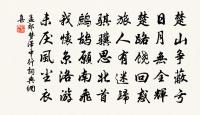 楚山争蔽亏
日月無全輝
楚路饒回惑
旅人有迷歸
騏驥思北首
鷓鴣願南飛
我懷京洛游
未厌風塵衣
孟郊夢澤中行詞典網
集